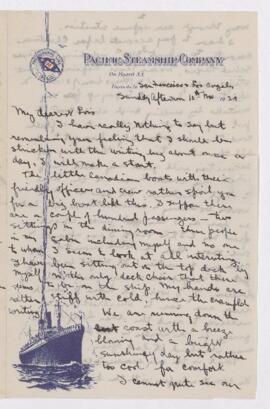 PACIFIC STEAMSHIP COMPANY
On Board S.S.
En route to San Francisco Los Angeles
Sunday Afternoon 16th Nov 192
My dearest Lois
I have really nothing to say but
remembering your feeling that I should be
stricken with the writing bug about once a
day, I will make a start.
The little Canadian boats with their
friendly officers and crew rather spoil you
for a big boat like this. I suppose there
are a couple of hundred passengers – two
sittings in the dining room. Three people
cabin including myself and no one
to whom I seem to look at all interesting.
I have been sitting out on the top deck by
myself in the only deck chair that there
seems to be on the ship. My hands are
rather stiff with cold, hence the
writing
We are running down the
coast with a breeze
blowing and a bright
sunshiny day but rather
too cool for comfort
I cannot quite see our